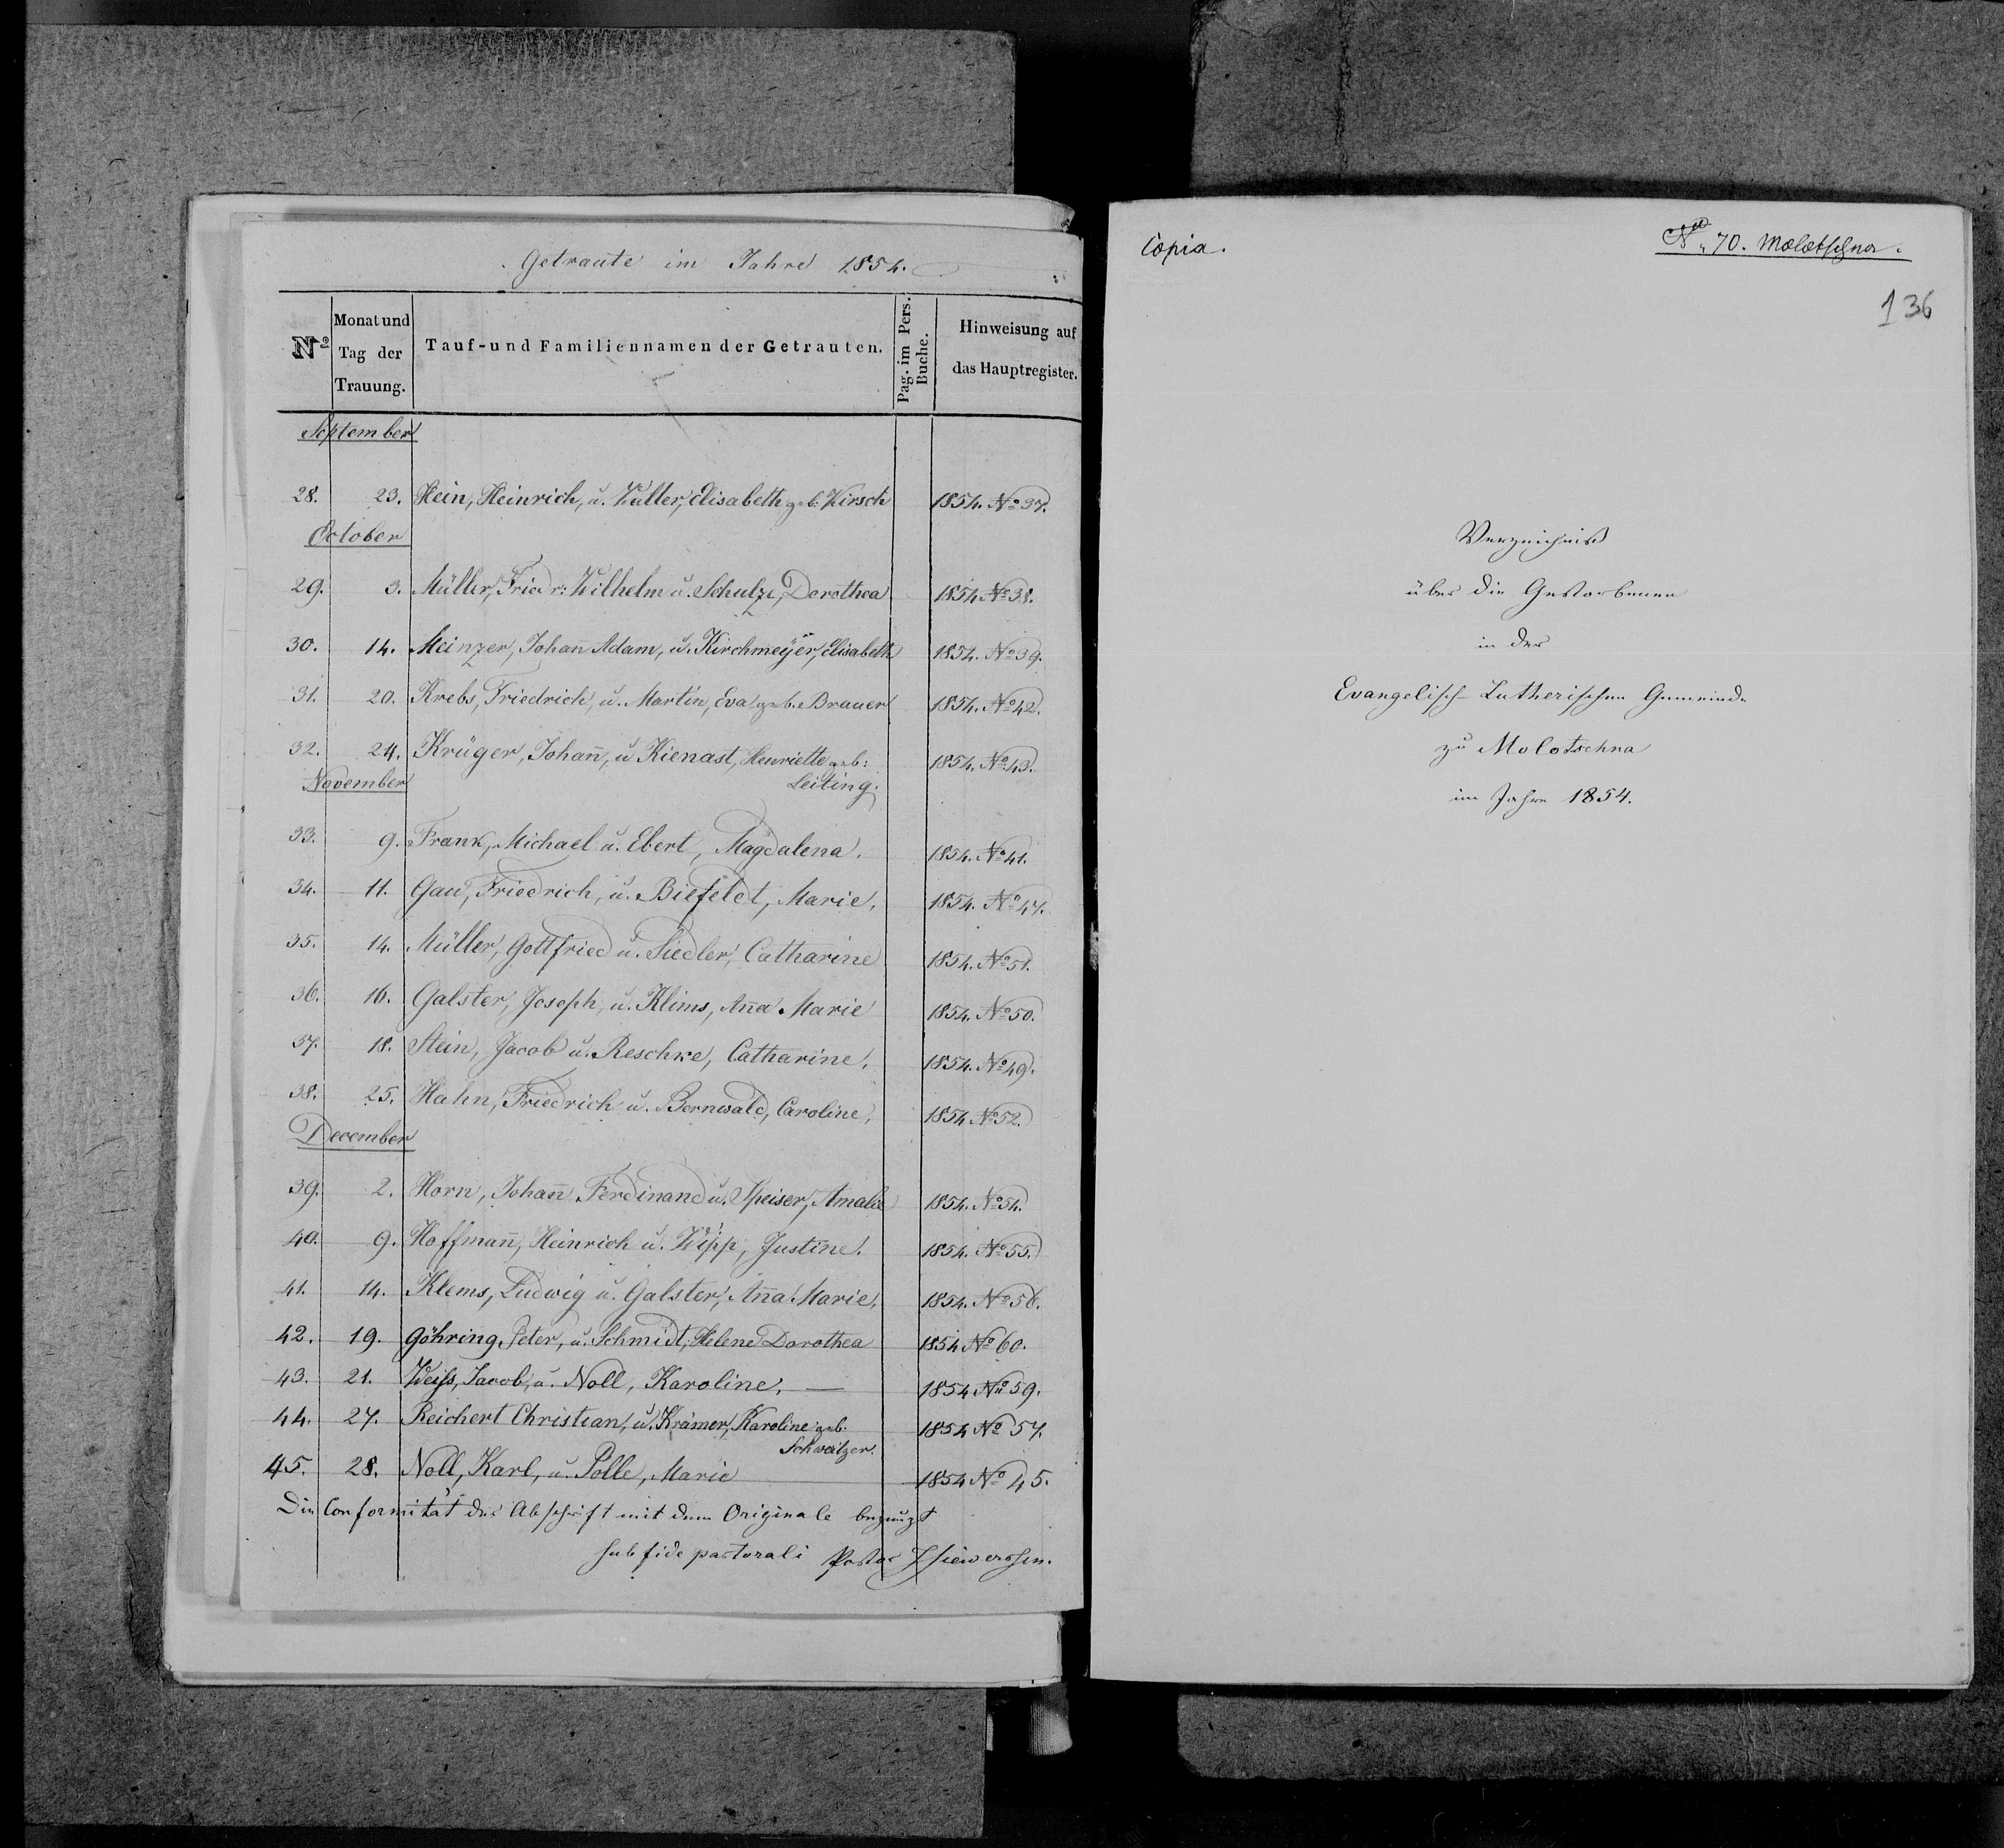 Getraute im Jahre 1854.
Nº
Monat und Tag der Trauung.
Tauf- und Familiennamen der Getrauten.
Pag. im Pers. Buche.
Hinweisung auf das Hauptregister.
September
28. 23. Hein, Heinrich, u. Walter, Elisabeth geb. Kirsch 1854. Nº 37.
October
29. 3. Müller, Friedr: Wilhelm u. Schulze, Dorothea 1854 Nº 38.
30. 14. Meinzer, Johan̄ Adam, u. Kirchmeÿer, Elisabeth 1854. Nº 39.
31. 20. Krebs, Friedrich, u. Martin, Eva geb. Brauer 1854. Nº 42.
32. 24. Krüger, Johan̄, u Kienast, Henriette geb: 1854. Nº 43.
Leiting.
November
33. 9. Frank, Michael u. Ebert, Magdalena. 1854. Nº 41.
34. 11. Gau, Friedrich, u. Biefeldt, Marie. 1854. Nº 47.
35. 14. Müller, Gottfried u. Siedler, Catharine 1854. Nº 51.
36. 16. Galster, Joseph, u. Klims, An̄a Marie 1854. Nº 50.
37. 18. Stein, Jacob u. Reschke, Catharine. 1854. Nº 49.
38. 25. Hahn, Friedrich u. Bernwald, Caroline, 1854 Nº 52.
December
39. 2. Horn, Johan̄ Ferdinand u. Speiser, Amalie 1854. Nº 54.
40. 9. Hoffman̄, Heinrich u. Wipp, Justine. 1854. Nº 55.
41. 14. Klems, Ludwig u. Galster, An̄a Marie, 1854. Nº 56.
42. 19. Göhring, Peter, u. Schmidt, Helene Dorothea 1854 Nº 60.
43. 21. Weiſs, Jacob, u. Noll, Karoline. — 1854 Nº 59.
44. 27. Reichert Christian, u. Krämer, Karoline geb. 1854 Nº 57.
Schweitzer.
45. 28. Noll, Karl, u. Polle, Marie 1854 Nº 45.
Die Conformität der Abschrift mit dem Originale bezeugt
sub fide pastorali Pastor
Copia.
Nº 70. Molotschna.
136
Verzeichniß
über die Gestorbenen
in der
Evangelisch-Lutherischen Gemeinde
zu Molotschna
im Jahre 1854.